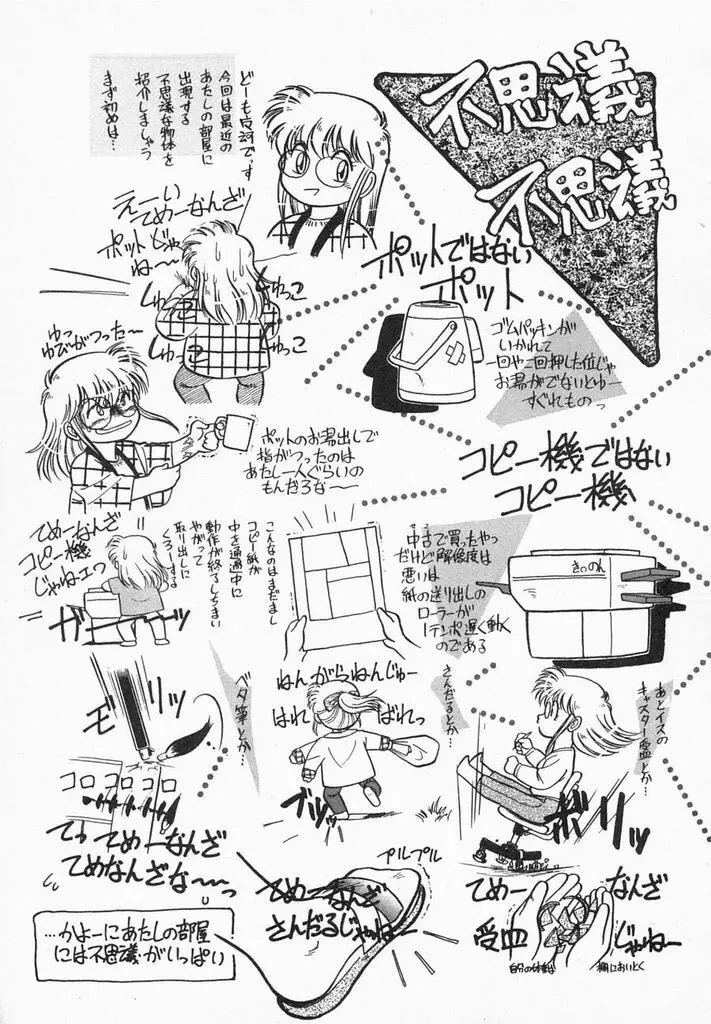 不思議
不思議
今回は最近の
あたしの部屋に
出現する
不思議な物体を
紹介しましょう
まず初めは…
ポットではない
ポット
ゴムパッキンが
いかれて
一回や二回押した位じゃ
お湯がでないとゆー
すぐれものっ
えーい
てめーなんざ
ポットじゃ
ね〜〜
しゅっこ
しゅっこ
しゅっこ
しゅっこ
ゆっ
ゆびがつった〜
ポットのお湯出しで
指がつったのは
あたし一人ぐらいの
もんだろな〜〜
コピー機ではない
コピー機
きゃのん
中古で買ったやつ
だけど解像度は
悪いは
紙の送り出しの
ローラーが
1テンポ遅く動く
のである
こんなのはまだまし
コピー紙が
中を通過中に
動作が終了しちまい
やがって
取り出しに
くろーする
てめーなんざ
コピー機
じゃねェっ
ガミーー
あとイスの
キャスター受皿とか…
ボリッ
てめー
なんざ
受皿
じゃねー
さんだるとか…
ねんがらねんじゅー
はれ
ばれっ
ブッッ
プルプル
てめーなんざ
さんだるじゃねー
ベタ筆とか…
モリッ
コロコロコロ
てってめーなんざ
てめなんざな〜〜っ
…かよーにあたしの部屋
には不思議がいっぱい